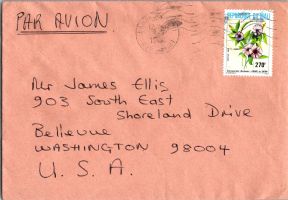 PAR AVION.
270F
Mr James Ellis
903 South East
Shoreland Drive
Bellevue
WASHINGTON 98004
U.S.A.